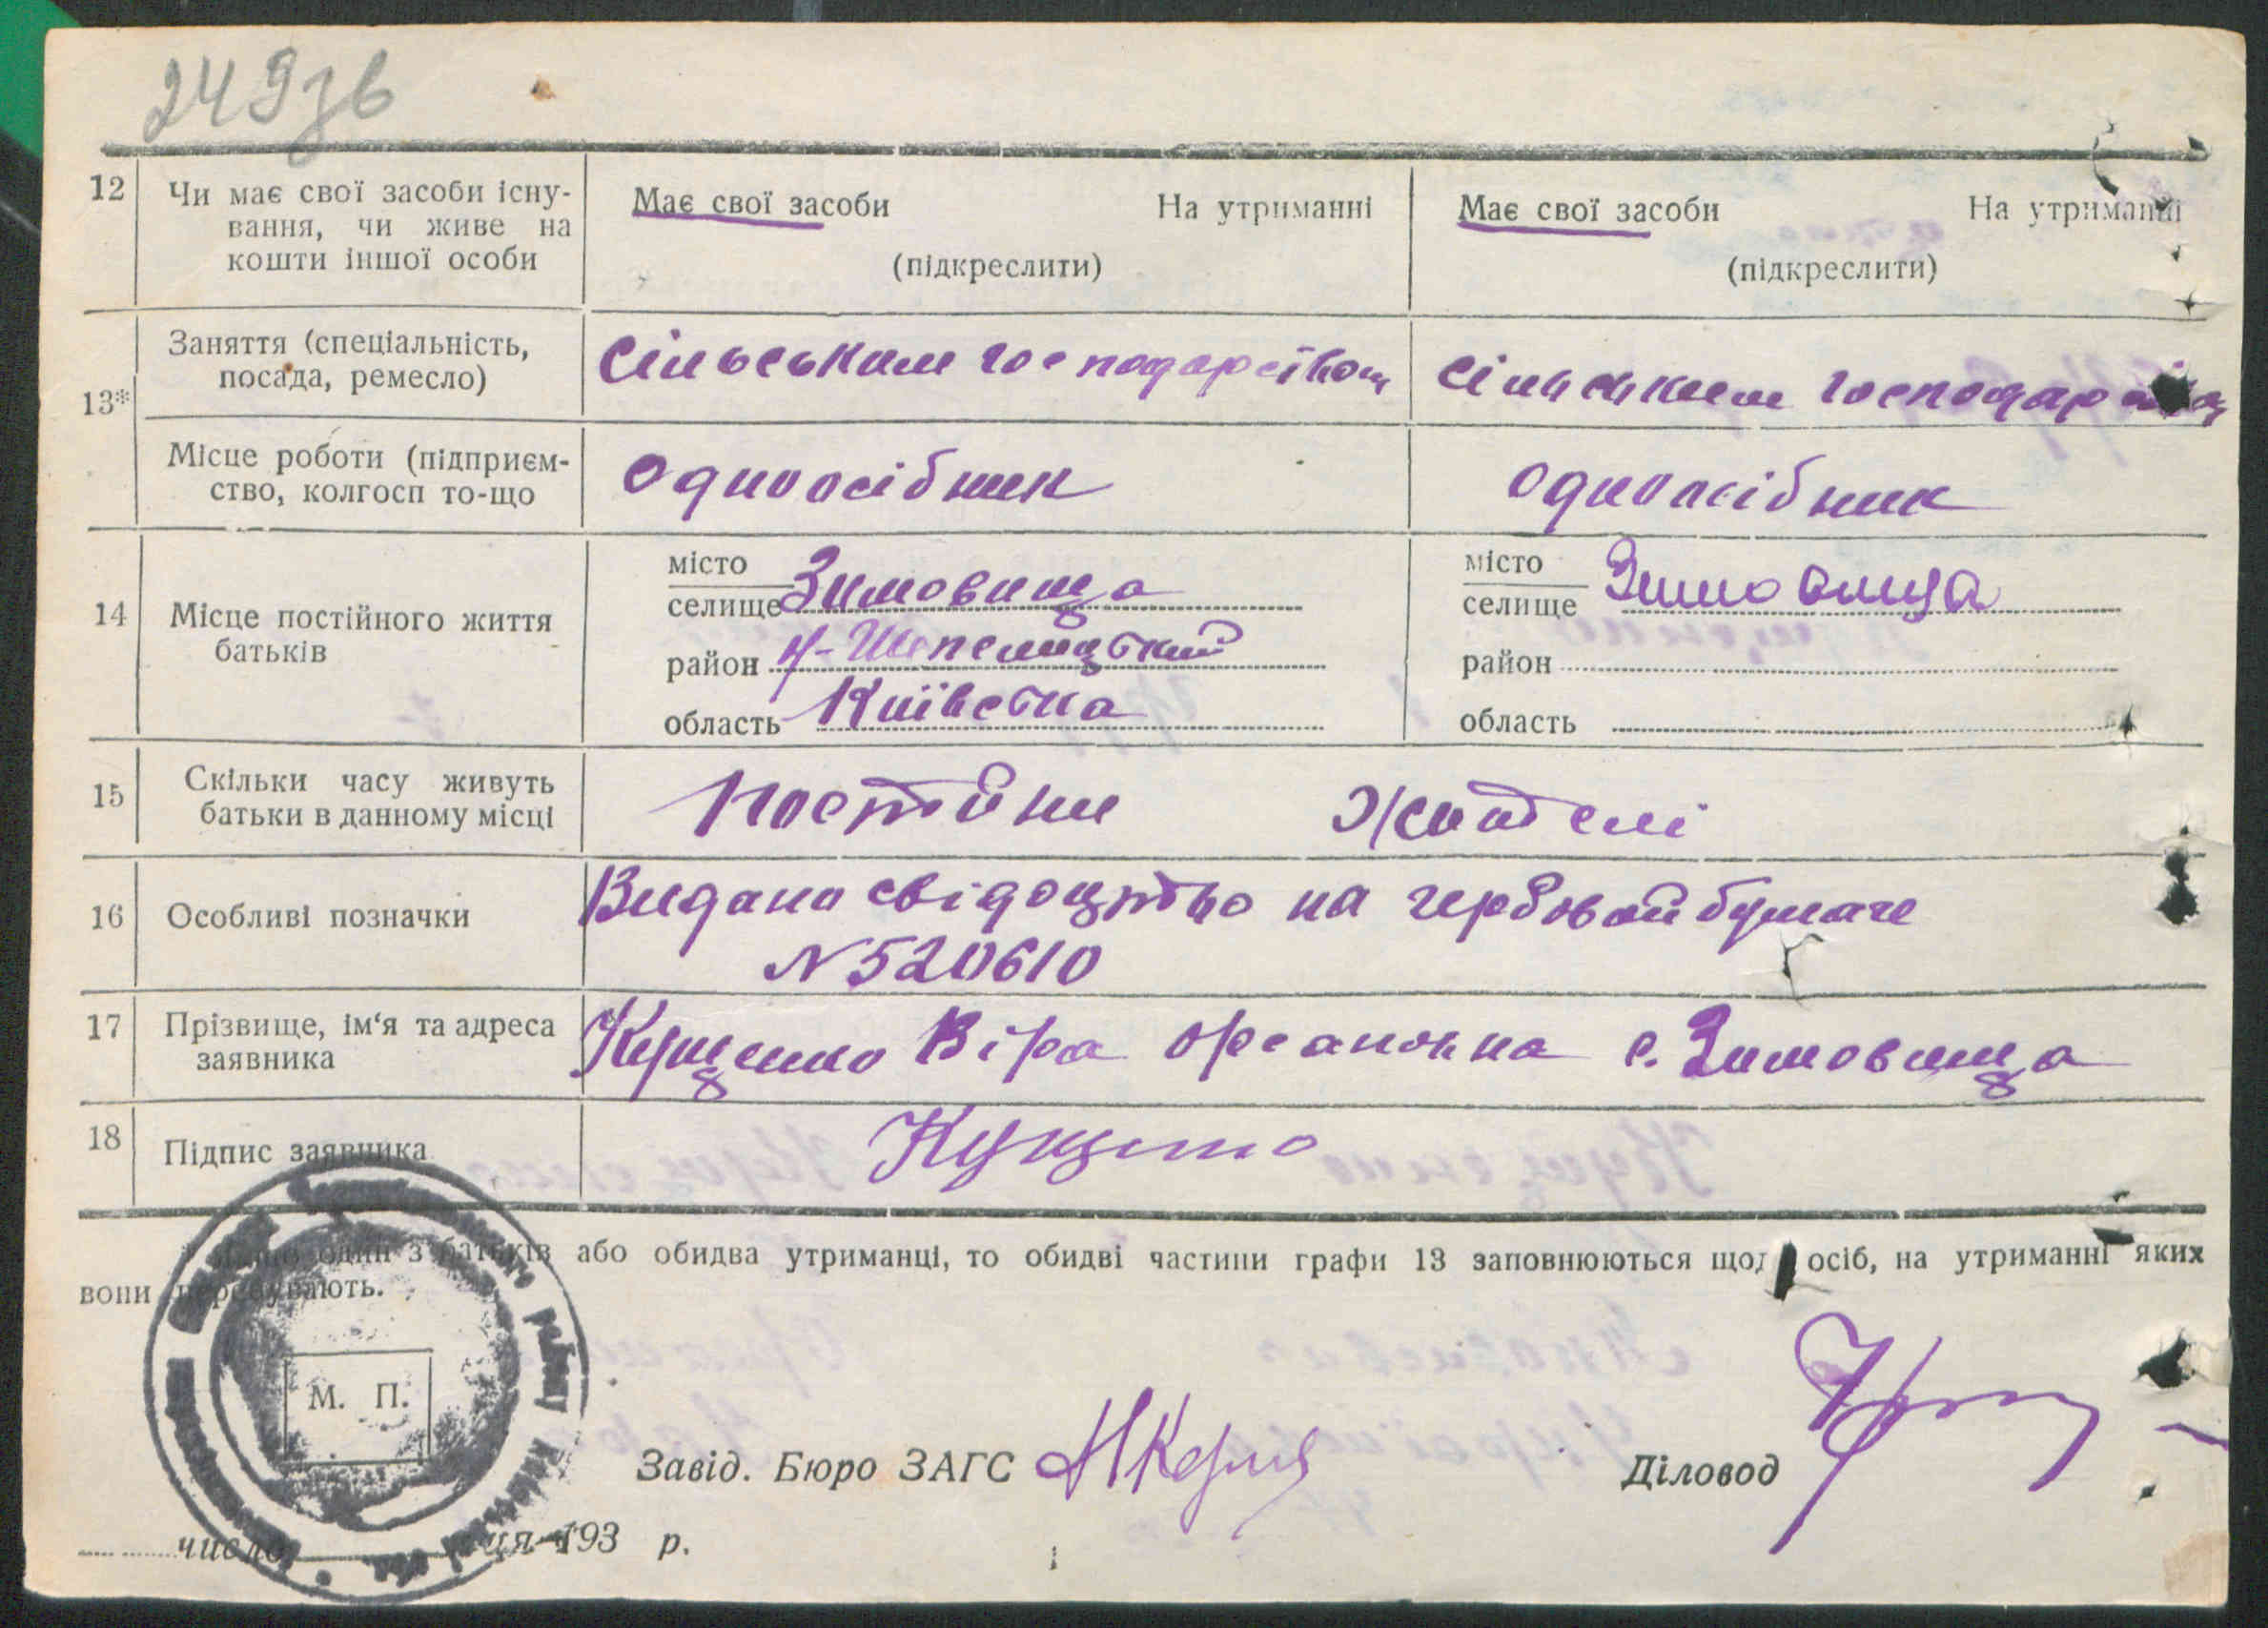 249зв
12 Чи має свої засоби існу-
вання, чи живе на
кошти іншої особи
Має свої засоби На утриманні
(підкреслити)
Має свої засоби На утриманні
(підкреслити)
13*
Заняття (спеціальність,
посада, ремесло)
Сільським господарством
сільським господарством
Місце роботи (підприєм-
ство, колгосп то-що
Одноосібник
одноосібник
14 Місце постійного життя
батьків
місто
селище Зимовища
район Н-Шепелицький
область Київська
місто
селище Зимовища
район
область
15 Скільки часу живуть
батьки в данному місці
Постійни жителі
16 Особливі позначки
Видано свідоцтво на гербовой бумаге
N 520610
17 Прізвище, ім‘я та адреса
заявника
Кущенко Віра с. Зимовища
18 Підпис заявника
Кущенко
один з батьків або обидва утриманці, то обидві частини графи 13 заповнюються щод осіб, на утриманні яких
вони перебувають.
М. П.
Завід. Бюро ЗАГС
Діловод
число ця 193 р.